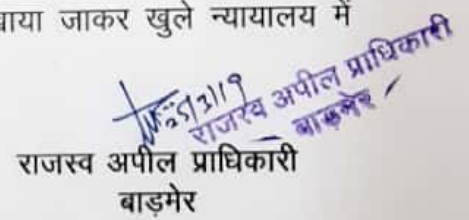 ाया जाकर खुले न्यायालय में
25/3/19
राजस्व अपील प्राधिकारी
बाड़मेर
राजस्व अपील प्राधिकारी
बाड़मेर